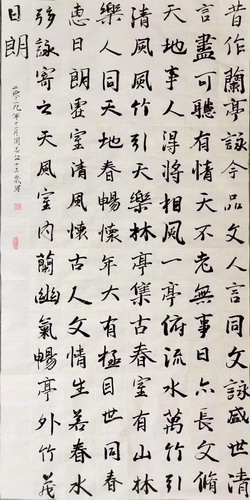 昔作蘭亭詠今品文人言同文詠盛世清
言盡可聽有情天不老無事日亦長文脩
天地事人得將相風一亭俯流水萬竹引
清風風竹引天樂林亭集古春室有山林
樂人同天地春暢懷年大有極目世同春
惠日朗虛室清風懷古人文情生若春水
絃詠寄之天風室內蘭幽氣暢亭外竹茂
日朗